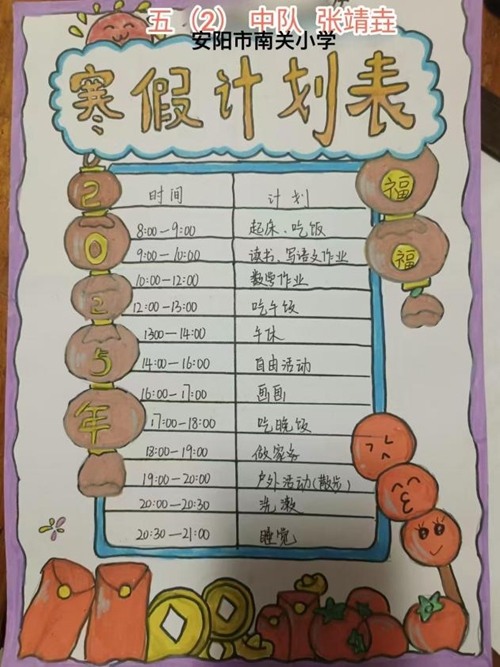 五（2）中队 张靖垚
安阳市南关小学
寒假计划表
2025年
福
福
时间 计划
8:00—9:00 起床、吃饭
9:00—10:00 读书、写语文作业
10:00—12:00 数学作业
12:00—13:00 吃午饭
1300—14:00 午休
14:00—16:00 自由活动
16:00—17:00 画画
17:00—18:00 吃晚饭
18:00—19:00 做家务
19:00—20:00 户外活动(散步)
20:00—20:30 洗漱
20:30—21:00 睡觉